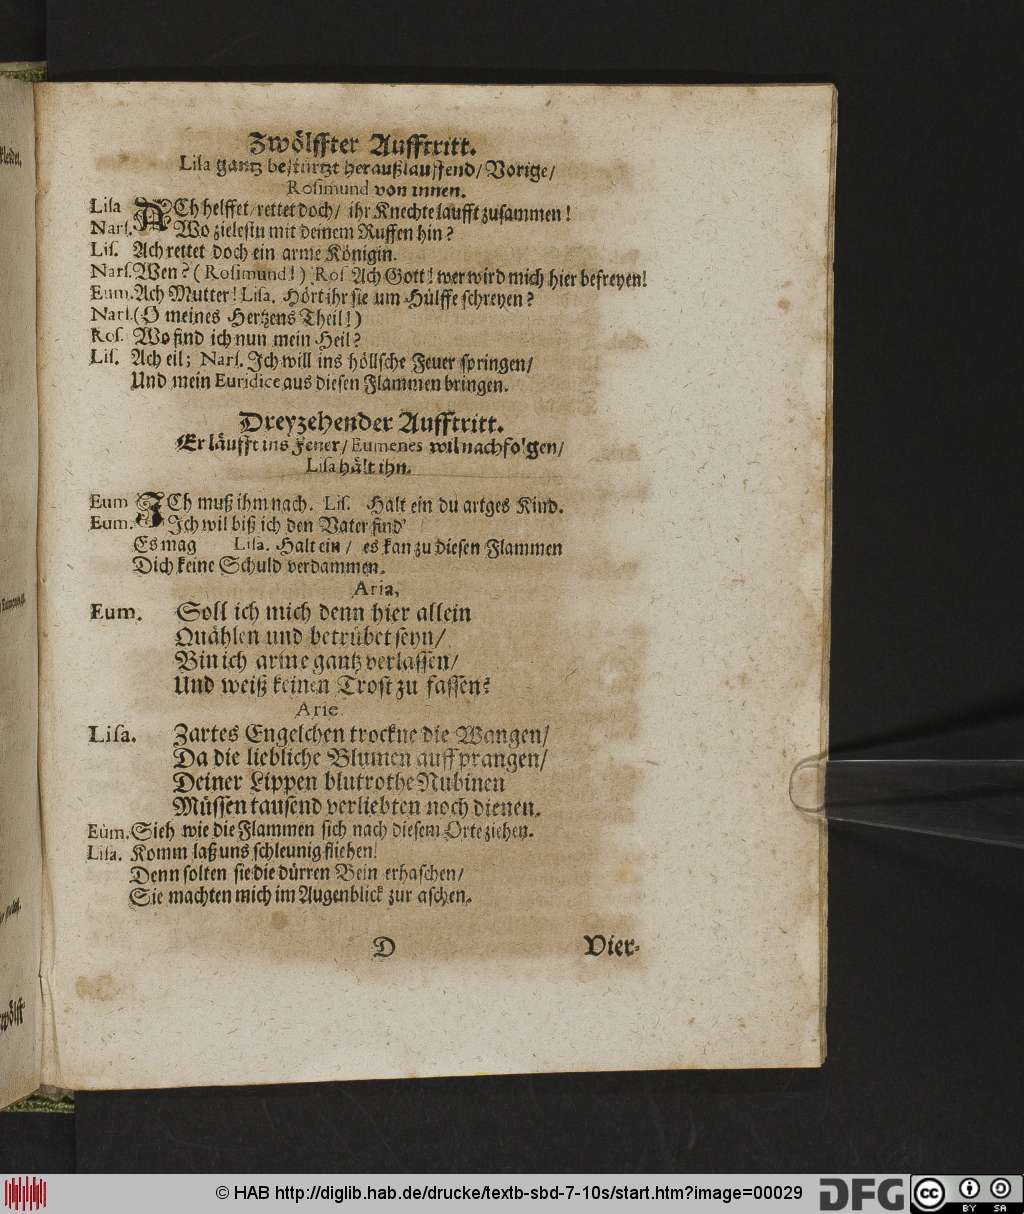 Zwölffter Aufftritt.
Lisa gantz bestürtzt heraußlauffend/ Vorige/
Rosimund von innen.
Lisa ACh helffet/ rettet doch/ ihr Knechte laufft zusammen!
Nars. Wo zielestu mit deinem Ruffen hin?
Lis. Ach rettet doch ein arme Königin.
Nars. Wen? (Rosimund!) Ros Ach Gott! wer wird mich hier befreyen!
Eum. Ach Mutter! Lisa. Hört ihr sie um Hülffe schreyen?
Nars. (O meines Hertzens Theil!)
Ros. Wo find ich nun mein Heil?
Lis. Ach eil; Nars. Ich will ins höllsche Feuer springen/
Und mein Euridice aus diesen Flammen bringen.
Dreyzehender Aufftritt.
Er läufft ins Feuer/ Eumenes wil nachfolgen/
Lisa hält ihn.
Eum ICh muß ihm nach. Lis. Halt ein du artges Kind.
Eum. Ich wil biß ich den Vater find'
Es mag Lisa. Halt ein/ es kan zu diesen Flammen
Dich keine Schuld verdammen.
Aria,
Eum. Soll ich mich denn hier allein
Quählen und betrübet seyn/
Bin ich arme gantz verlassen/
Und weiß keinen Trost zu fassen?
Arie
Lisa. Zartes Engelchen trockne die Wangen/
Da die liebliche Blumen auff prangen/
Deiner Lippen blutrothe Rubinen
Müssen tausend verliebten noch dienen.
Eum. Sieh wie die Flammen sich nach diesem Orte ziehen.
Lisa. Komm laß uns schleunig fliehen!
Denn solten sie die dürren Bein erhaschen/
Sie machten mich im Augenblick zur aschen.
D Vier-
© HAB http://diglib.hab.de/drucke/textb-sbd-7-10s/start.htm?image=00029
DFG
cc BY SA